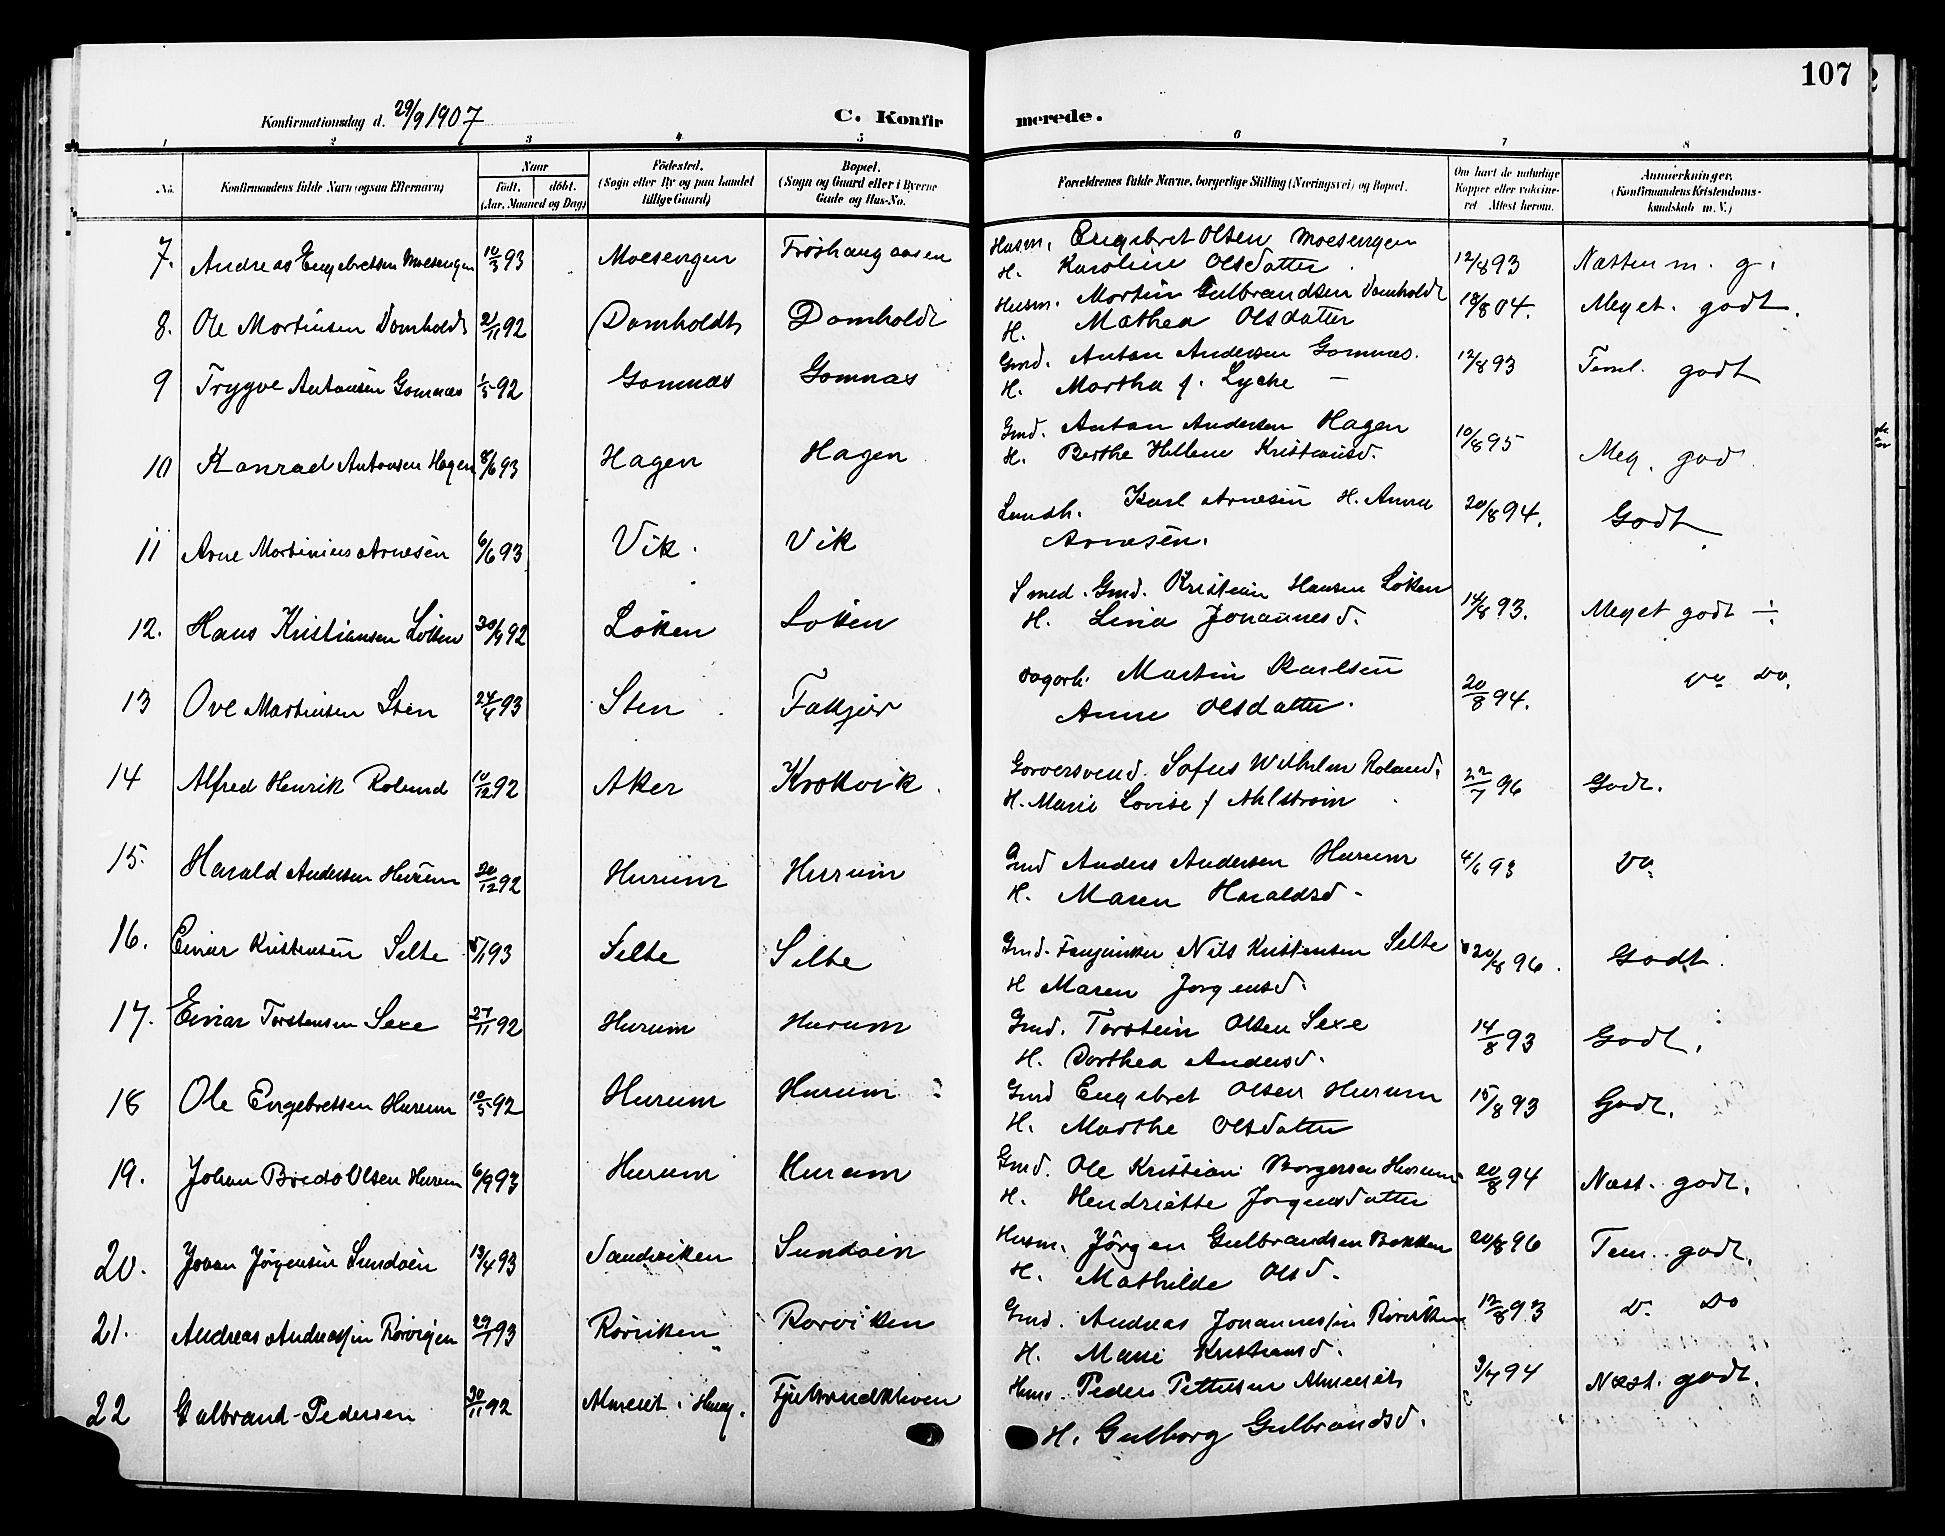 107
Konfirmationsdag d. 29/9 1907
C. Konfir
merede.
1 2 3 4 5 6 7 8
No.
Konfirmandens fulde Navn (ogsaa Efternavn)
Naar
født. døbt.
(Aar, Maaned og Dag)
Födested.
(Sogn eller By og paa Landet
tillige Gaard)
Bopæl.
(Sogn og Gaard eller i Byerne
Gade og Hus-No.
Forældrenes fulde Navne, borgerlige Stilling (Næringsvei) og Bopæl.
Om havt de naturlige
Kopper eller vakcine-
ret Attest herom.
Anmerkninger.
(Konfirmandens Kristendoms-
kundskab m. V.)
7. Andreas Engebretsen Moesengen 93 Moesengen Frøshaugaasen Husm. Engebret Olsen Moesengen 12/8 93 Næsten m. g.
H. Karoline Olsdatter
8. Ole Martinsen Domholdt 21/11 92 Domholdt Domholdt Husm. Martin Gulbrandsen Domholdt 18/8 04. Meget godt.
H. Mathea Olsdatter
9 Trygve Antonsen Gomnæs 92 Gomnæs Gomnæs Gmd. Anton Andersen Gomnæs. 12/8 93 Teml. godt
H. Martha f. Lyche —
10 Konrad Antonsen Hagen 8/6 93 Hagen Hagen Gmd. Anton Andersen Hagen 10/8 95 Meg. god
H. Berthe Hellene Kristiansd.
11 Arne Martinius Arnesen 6/6 93 Vik. Vik Landh. Karl Arnesen H. Anna 20/8 94. Godt.
Arnesen.
12. Hans Kristiansen Løken 30/9 92 Løken Løken Smed. Gmd. Kristian Hansen Løken 14/8 93. Meget godt ÷
H. Lina Johannesd.
13 Ove Martinsen Sten 24/4 93 Sten Martin Karlsen 20/8 94. Do Do.
Anne Olsdatter.
14 Alfred Henrik Roland 10/12 92 Aker Krokvik Garversvend. Sofus Wilhelm Roland. 22/7 96 Godt.
H. Marie Lovise f Ahlstrøm
15. Harald Andersen Hurum 20/12 92 Hurum Hurum Gmd Anders Andersen Hurum 4/6 93 Do.
H. Maren Haraldsd.
16. Einar Kristensen Selte 5/1 93 Selte Selte Gmd. Nils Kristensen Selte 20/8 96. Godt.
H Maren Jørgensd.
17. Einar Torstensen Sexe 27/11 92 Hurum Hurum Gmd. Torstein Olsen Sexe 14/8 93 Godt.
H. Dorthea Andersd.
18 Ole Engebretsen Hurum 10/5 92 Hurum Hurum Gmd Engebret Olsen Hurum 15/8 93 Godt.
H. Marthe Olsdatter
19. Johan Bredo Olsen Hurum 6/9 93 Hurum Hurum Gmd. Ole Kristian Borgersen Hurum 20/8 94 Næst. godt.
H. Hendriette Jørgensdatter
20. Johan Jørgensen Sundøen 13/4 93 Sandviken Sundøen Husm. Jørgen Gulbrandsen Bakken 20/8 96 Tem. godt.
H. Mathilde Olsd.
21. Andreas Andreassen Rørvigen 29/1 93 Rørviken Rørviken Gmd. Andreas Johannessen Rørviken 12/8 93 D. Do
H. Marie Kristiansd.
22 Gulbrand Pedersen 30/11 92 Husm. Peder Pettersen 3/7 94 Næst. godt.
H. Gulborg Gulbrandsd.